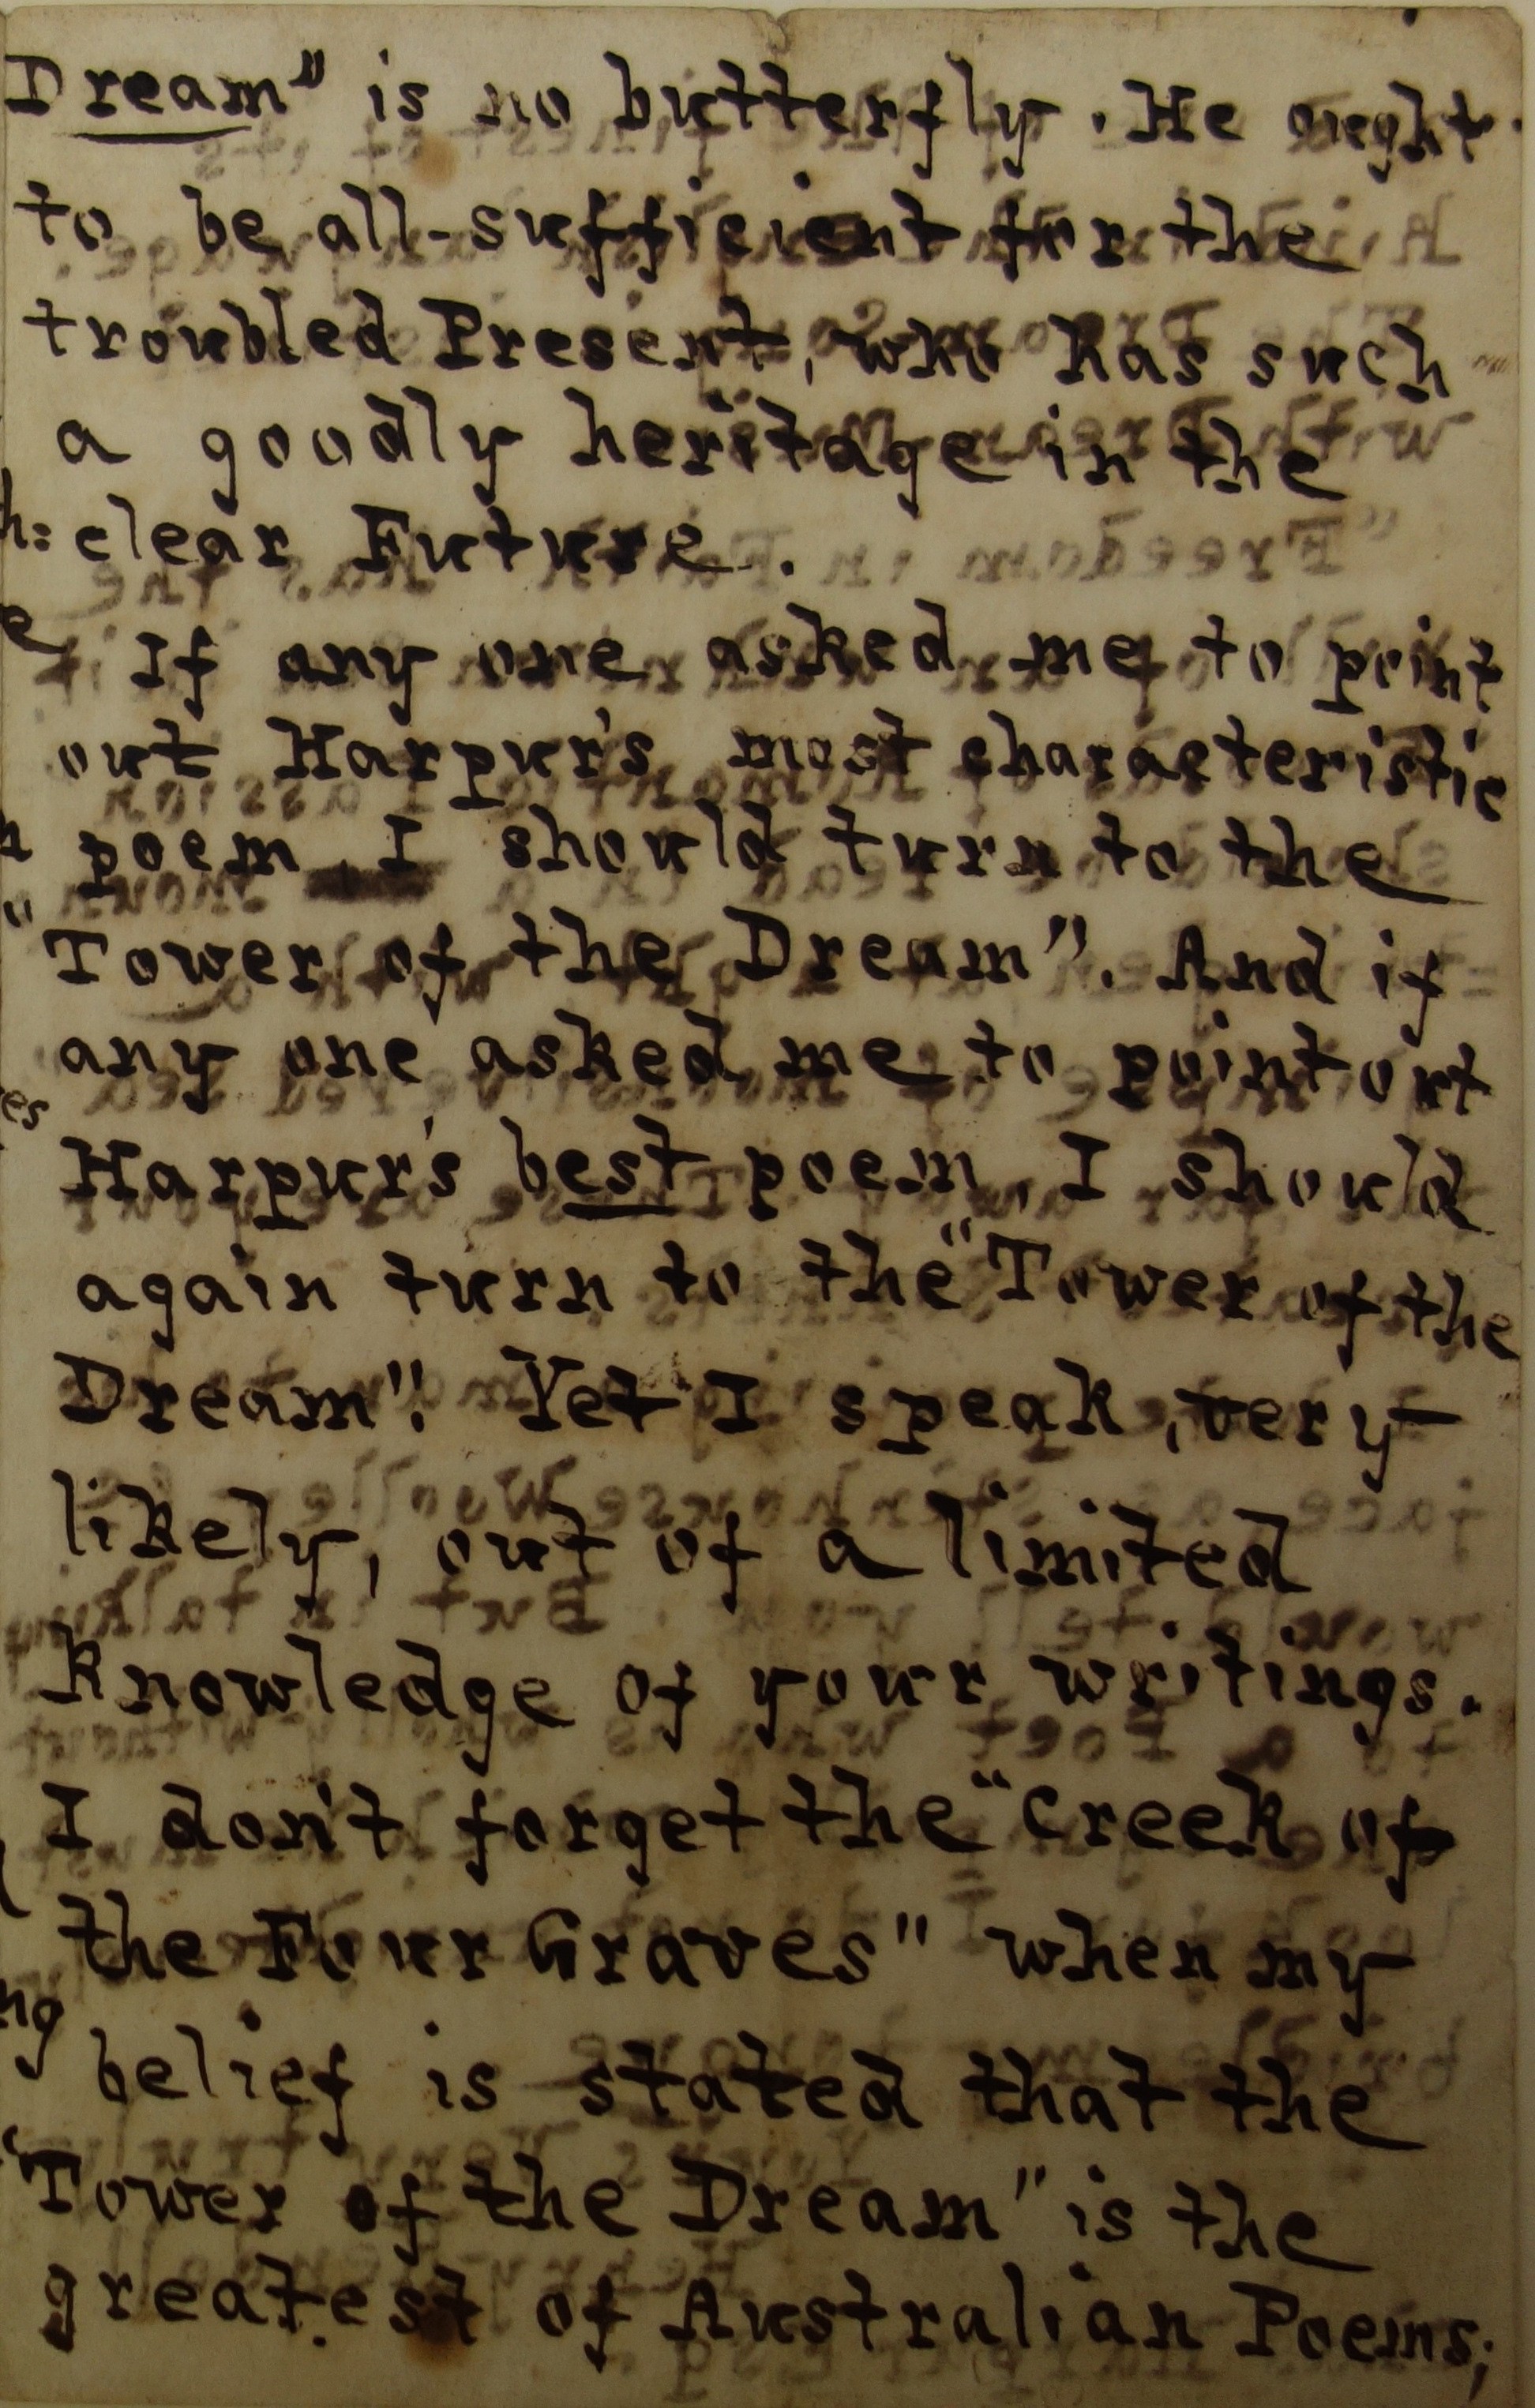 Dream" is no butterfly. He ought
to be all-sufficient for the
troubled Present, who has such
a goodly heritage in the
clear Future.
If any one asked me to point
out Harpur's most characteristic
poem, I should turn to the
"Tower of the Dream". And if
any one asked me to point out
Harpur's best poem, I should
again turn to the "Tower of the
Dream". Yet I speak, very
likely, out of a limited
knowledge of your writings.
I don't forget the "Creek of
the Four Graves" when my
belief is stated that the
"Tower of the Dream" is the
greatest of Australian Poems;